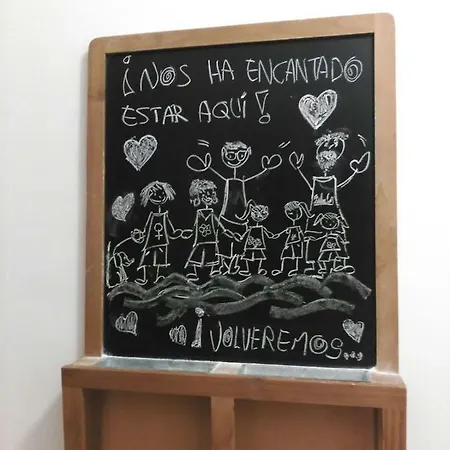 ¡NOS HA ENCANTADO
ESTAR AQUÍ!
¡VOLVEREMOS...